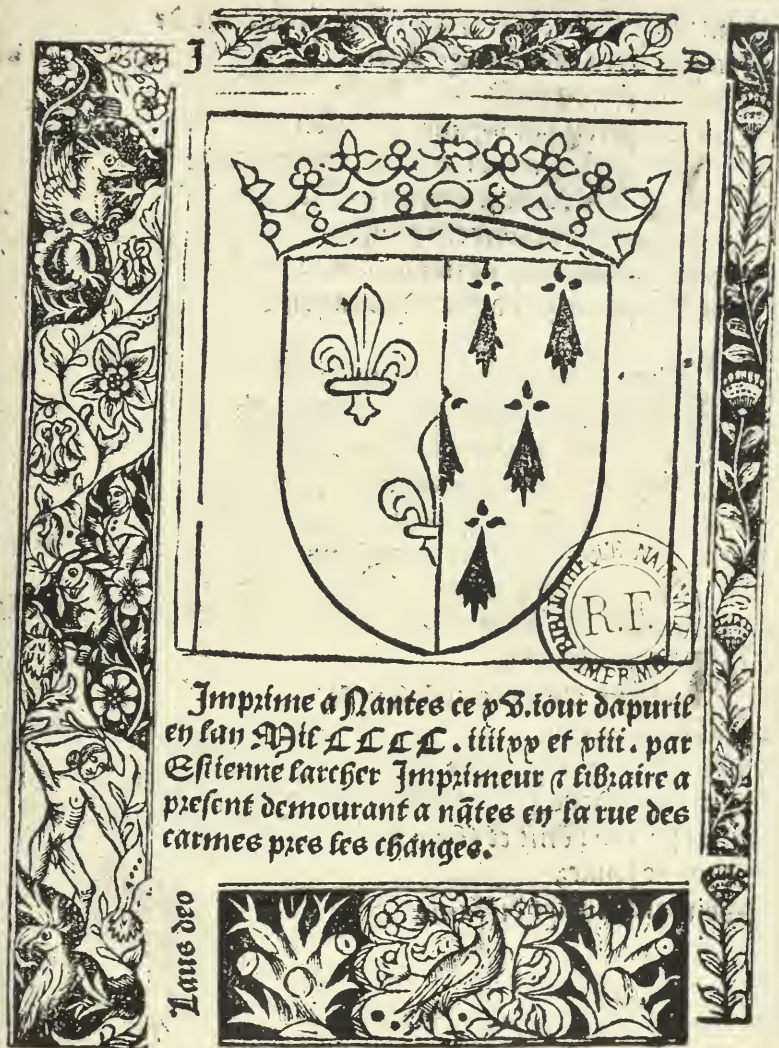 I D
BIBLIOTHEQUE
R.F.
Imprime a Nantes ce xv.iour dapuril
en lan Mil CCCC. iiiixx et xiii. par
Estienne larcher Imprimeur ⁊ libraire a
present demourant a nātes en la rue des
carmes pres les changes.
Laus deo